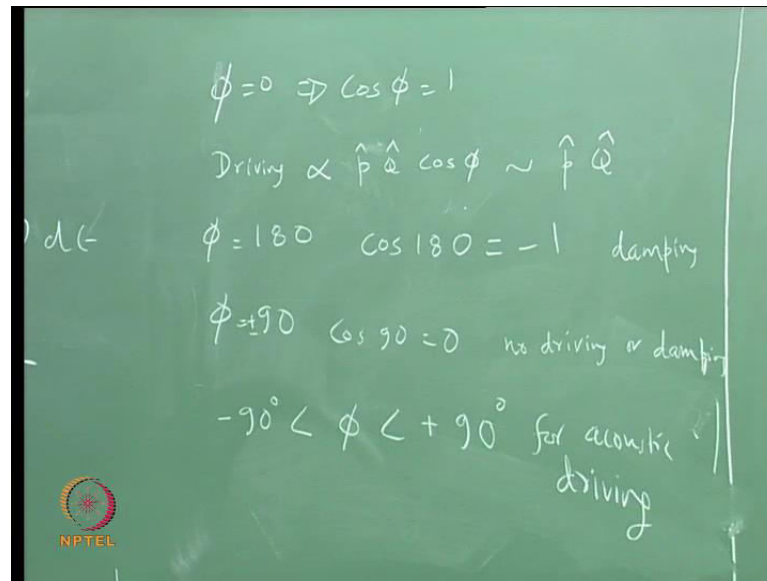 φ = 0 ⇒ cos φ = 1
Driving ∝ p̂ Q̂ cos φ ~ p̂ Q̂
) dt
φ = 180 cos 180 = -1 damping
φ = ±90 cos 90 = 0 no driving or damping
-90° < φ < +90° for acoustic
driving
NPTEL